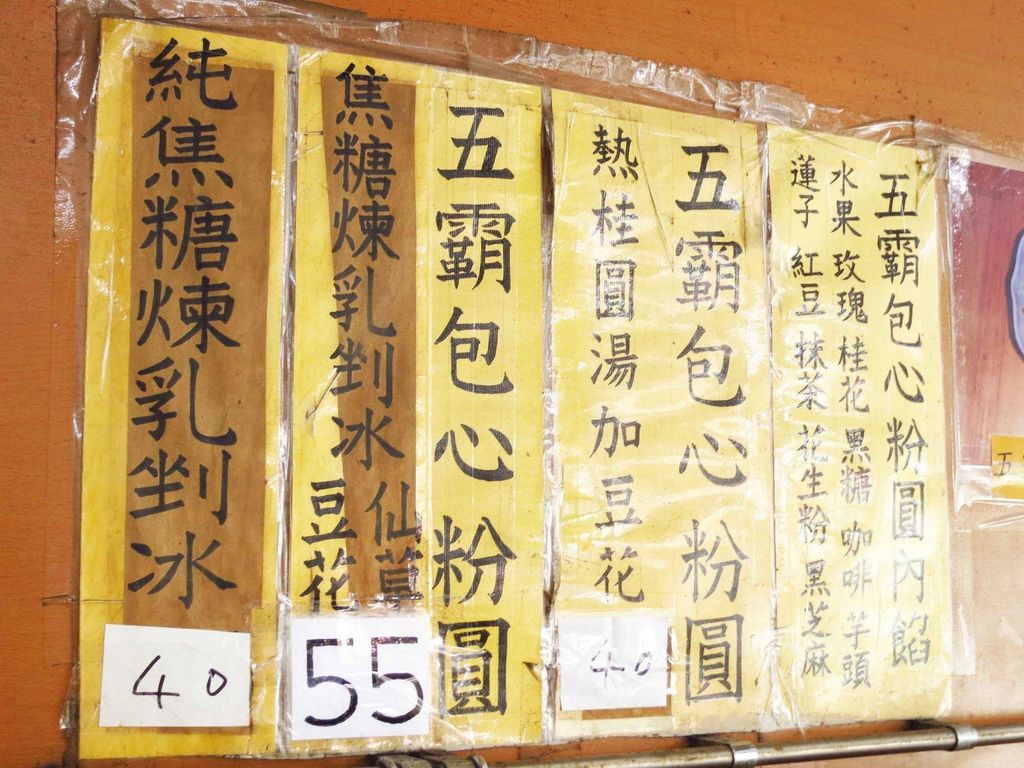 五霸包心粉圓內餡
水果 玫瑰 桂花 黑糖 咖啡 芋頭
蓮子 紅豆 抹茶 花生粉 黑芝麻
五霸包心粉圓
熱桂圓湯加豆花
40
五霸包心粉圓
焦糖煉乳剉冰
仙草
豆花
55
純焦糖煉乳剉冰
40
五